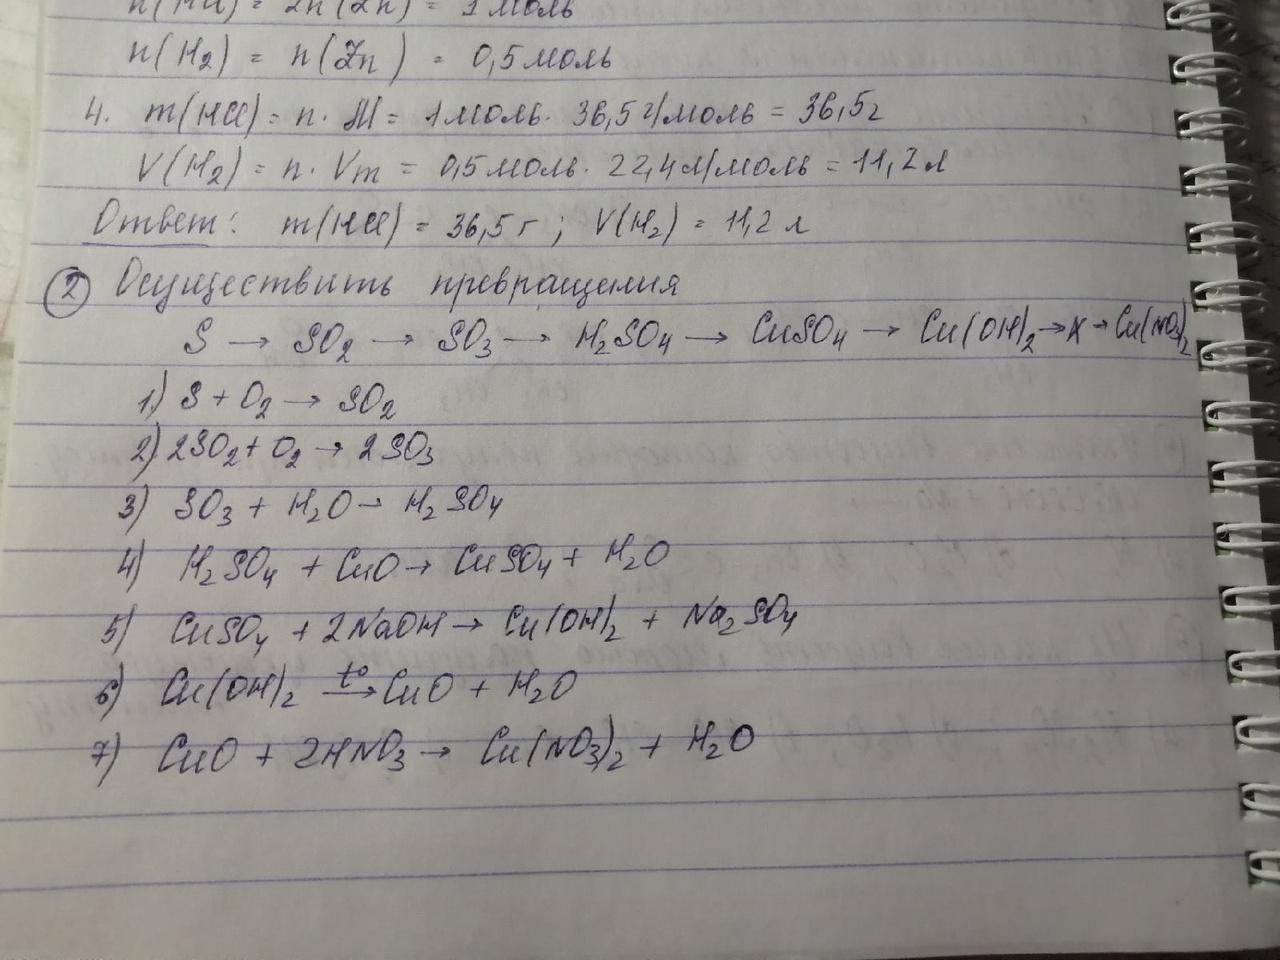 n(HCl) = 2n(Zn) = 1 моль
n(H₂) = n(Zn) = 0,5 моль
4. m(HCl) = n · M = 1 моль · 36,5 г/моль = 36,5 г
V(H₂) = n · Vm = 0,5 моль · 22,4 л/моль = 11,2 л
Ответ: m(HCl) = 36,5 г; V(H₂) = 11,2 л
② Осуществить превращения
S → SO₂ → SO₃ → H₂SO₄ → CuSO₄ → Cu(OH)₂ → X → Cu(NO₃)₂
1) S + O₂ → SO₂
2) 2SO₂ + O₂ → 2SO₃
3) SO₃ + H₂O → H₂SO₄
4) H₂SO₄ + CuO → CuSO₄ + H₂O
5) CuSO₄ + 2NaOH → Cu(OH)₂ + Na₂SO₄
6) Cu(OH)₂ t° → CuO + H₂O
7) CuO + 2HNO₃ → Cu(NO₃)₂ + H₂O